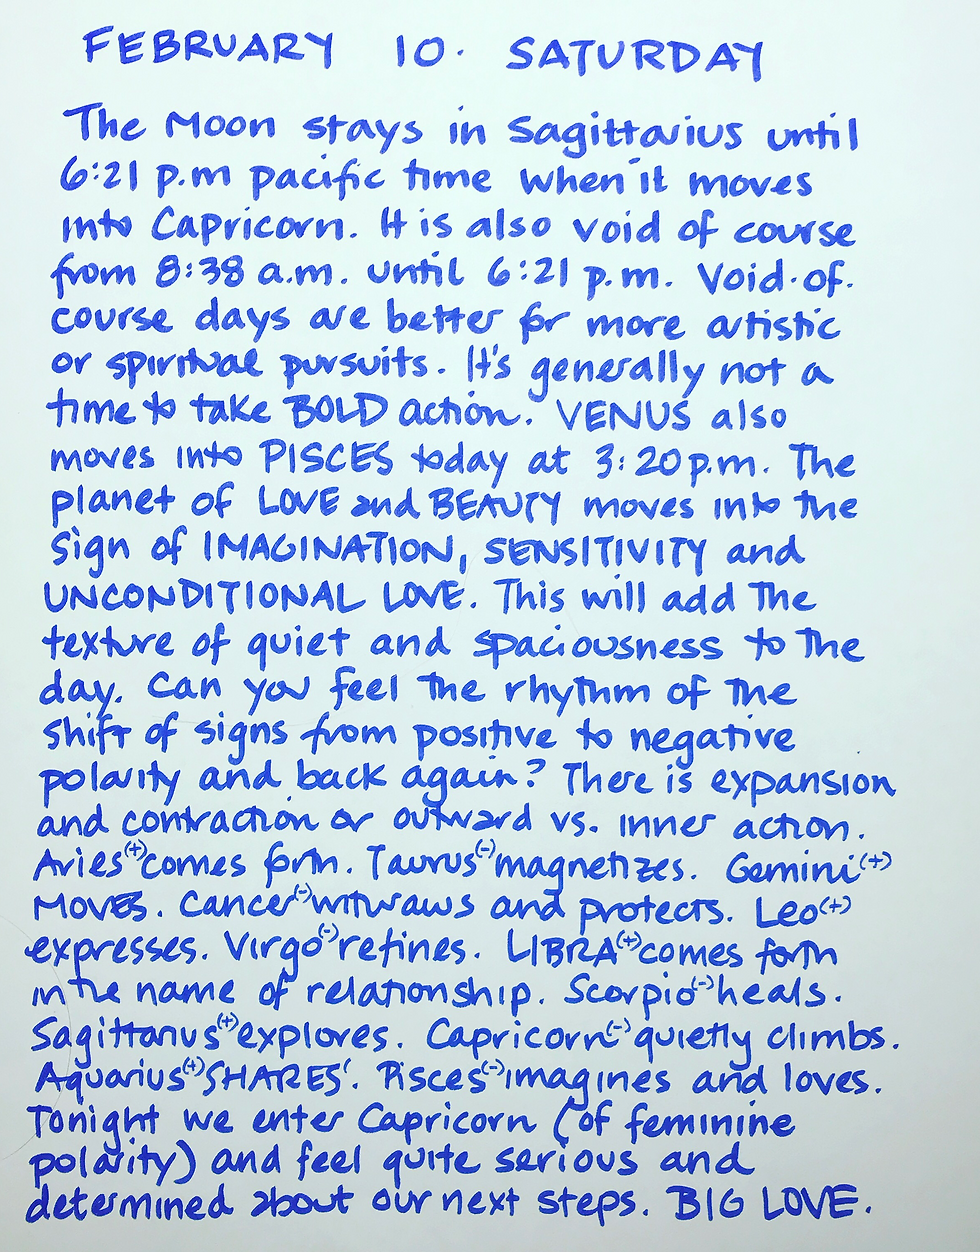 FEBRUARY 10. SATURDAY
The Moon stays in Sagittarius until
6:21 p.m pacific time when it moves
into Capricorn. It is also void of course
from 8:38 a.m. until 6:21 p.m. Void.of.
course days are better for more artistic
or spiritual pursuits. It's generally not a
time to take BOLD action. VENUS also
moves into PISCES today at 3:20 p.m. The
planet of LOVE and BEAUTY moves into the
sign of IMAGINATION, SENSITIVITY and
UNCONDITIONAL LOVE. This will add the
texture of quiet and spaciousness to the
day. Can you feel the rhythm of the
shift of signs from positive to negative
polarity and back again? There is expansion
and contraction or outward vs. inner action.
Aries(+) comes forth. Taurus(-) magnetizes. Gemini(+)
MOVES. Cancer(-) withraws and protects. Leo(+)
expresses. Virgo(-) refines. LIBRA(+) comes forth
in the name of relationship. Scorpio(-) heals.
Sagittarius(+) explores. Capricorn(-) quietly climbs.
Aquarius(+) 'SHARES'. Pisces(-) imagines and loves.
Tonight we enter Capricorn (of feminine
polarity) and feel quite serious and
determined about our next steps. BIG LOVE.